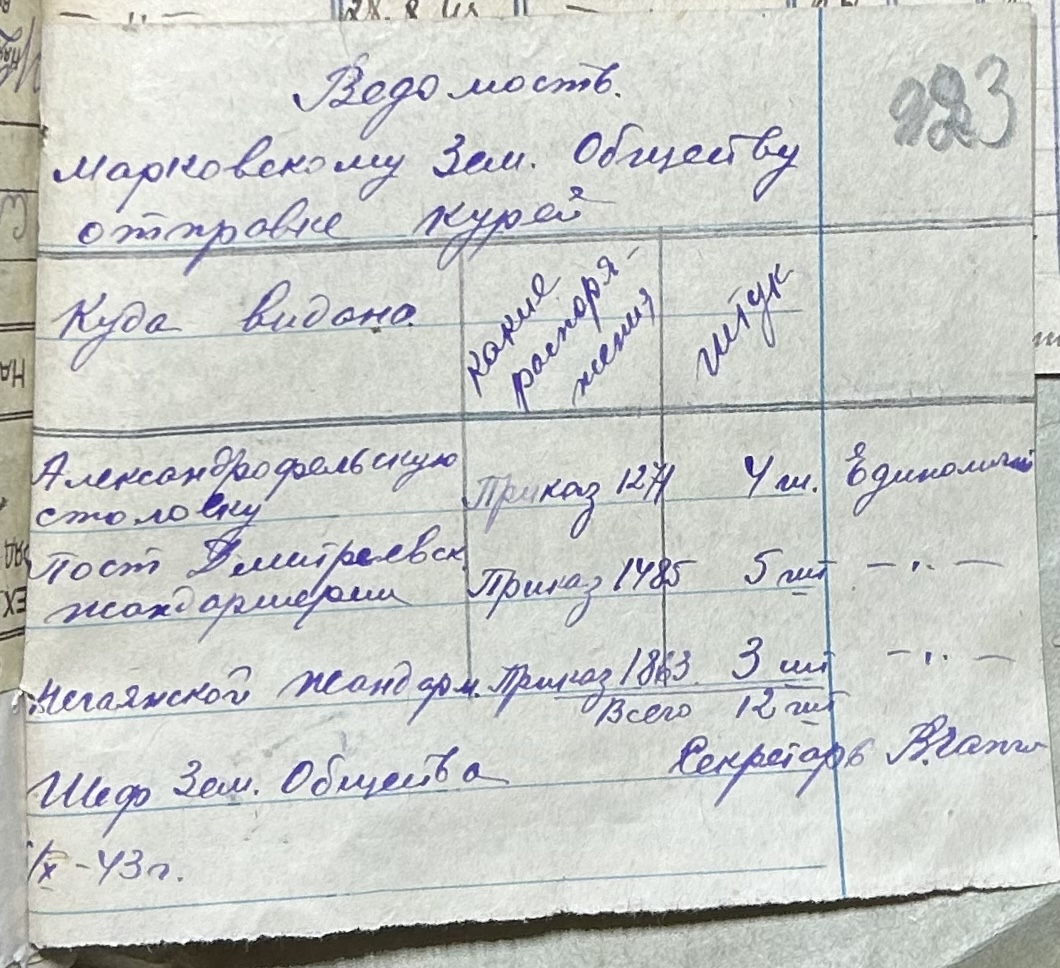 923
Ведомость.
Марковскому Зем. Обществу
отправке курей
Куда видано.
какие
распоря-
жения
штук
Александрофельскую
столовку
Приказ 1271
4 ш.
Пост Дмитриевск.
жандармерии
Приказ 1485
5 шт
— ,, —
Жандарм. Приказ 1863
3 шт
— ,, —
Всего 12 шт
Шеф Зем. Общества
Секретарь
X - 43 г.